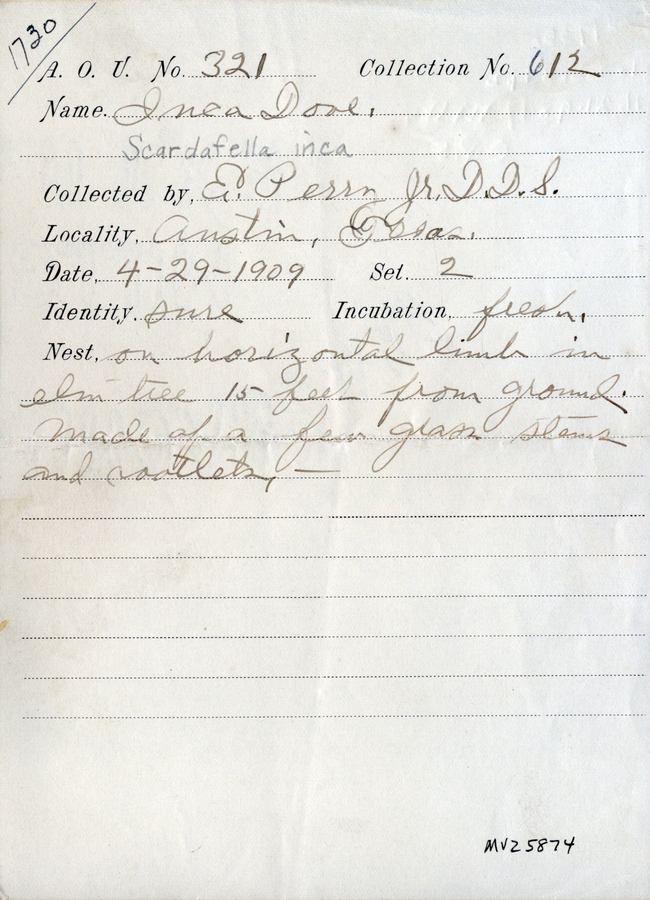 1730
A. O. U. No. 321 Collection No. 612
Name. Inca Dove.
Scardafella inca
Collected by, E. Perry Jr. D.D.S.
Locality, Austin, Texas.
Date, 4-29-1909 Set. 2
Identity, sure Incubation, fresh.
Nest, on horizontal limb in
elm tree 15 feet from ground.
Made of a few grass stems
and rootlets, —
MVZ 5874